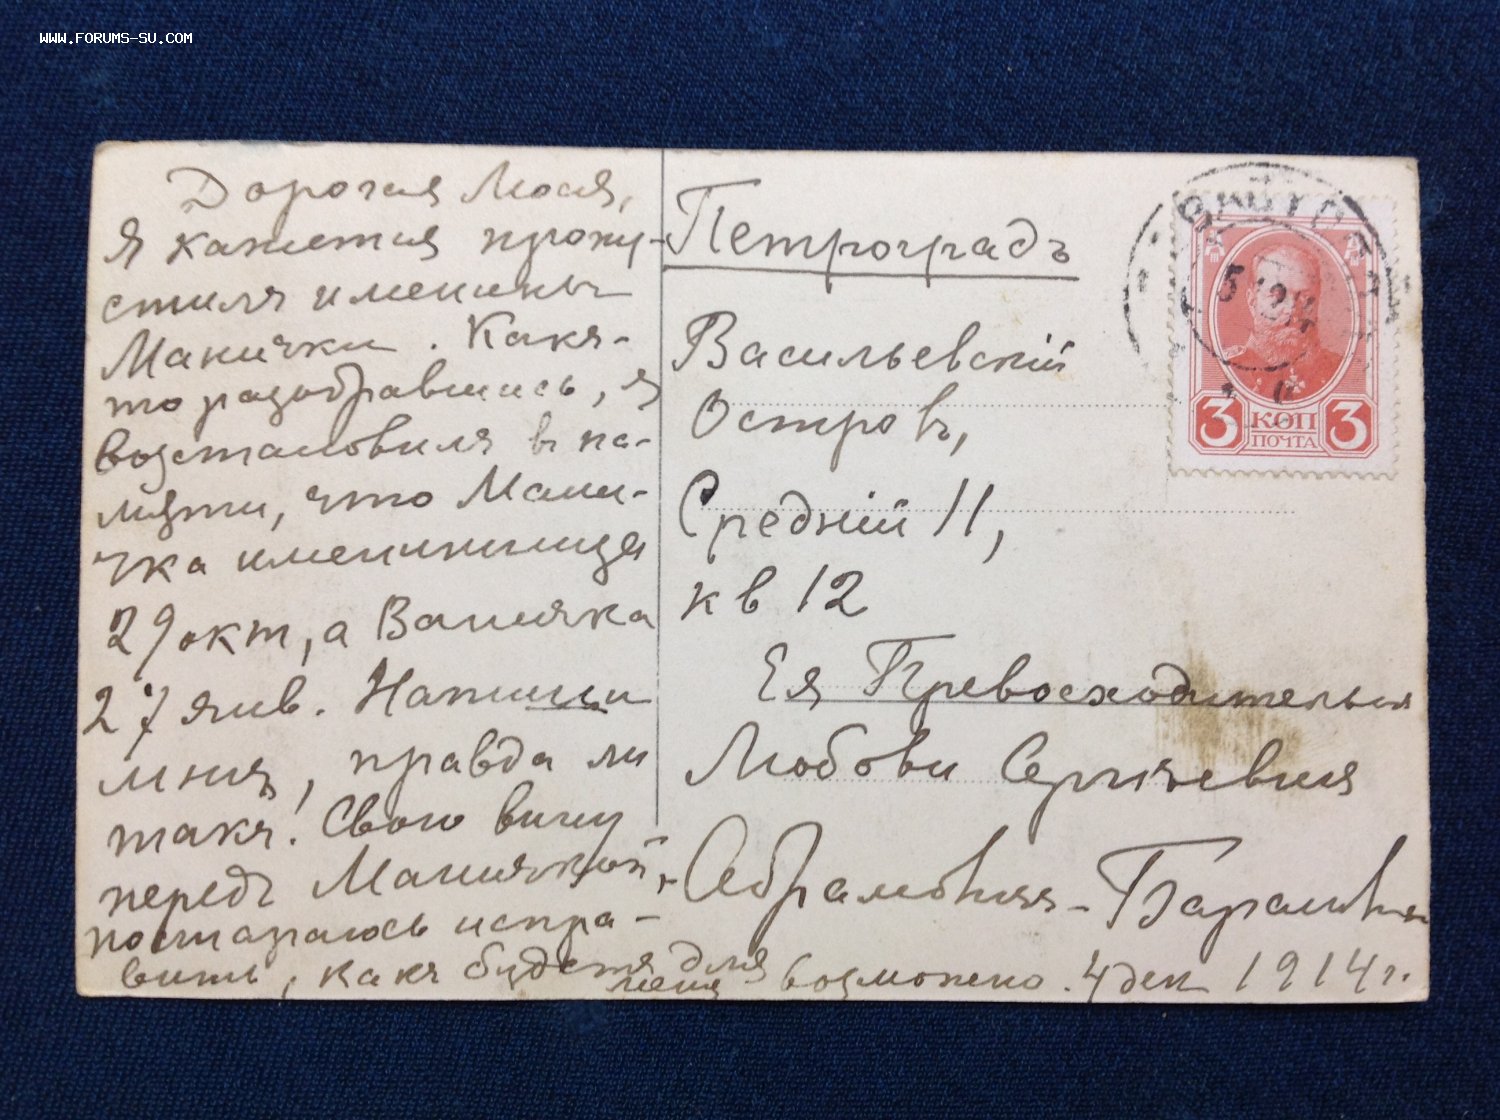 WWW.FORUMS-SU.COM
Дорогая Люся,
Я кажется пропу-
стилъ именины
Манички. Какъ-
то разобравшись, я
возстановилъ въ па-
мяти, что Мани-
чка именинница
29 окт, а Ваничка
27 янв. Напиши
мнѣ, правда ли
такъ! Свою вину
передъ Маничкой,
постараюсь испра-
вить, какъ будетъ для меня возможно. 4 дек 1914 г.
Петроградъ
Васильевскій
Островъ,
Средній 11,
кв 12
Ея Превосходительс
Любови Сергѣевнѣ
Абрамовичъ-Барановс
5 12 14
3 КОП 3
ПОЧТА